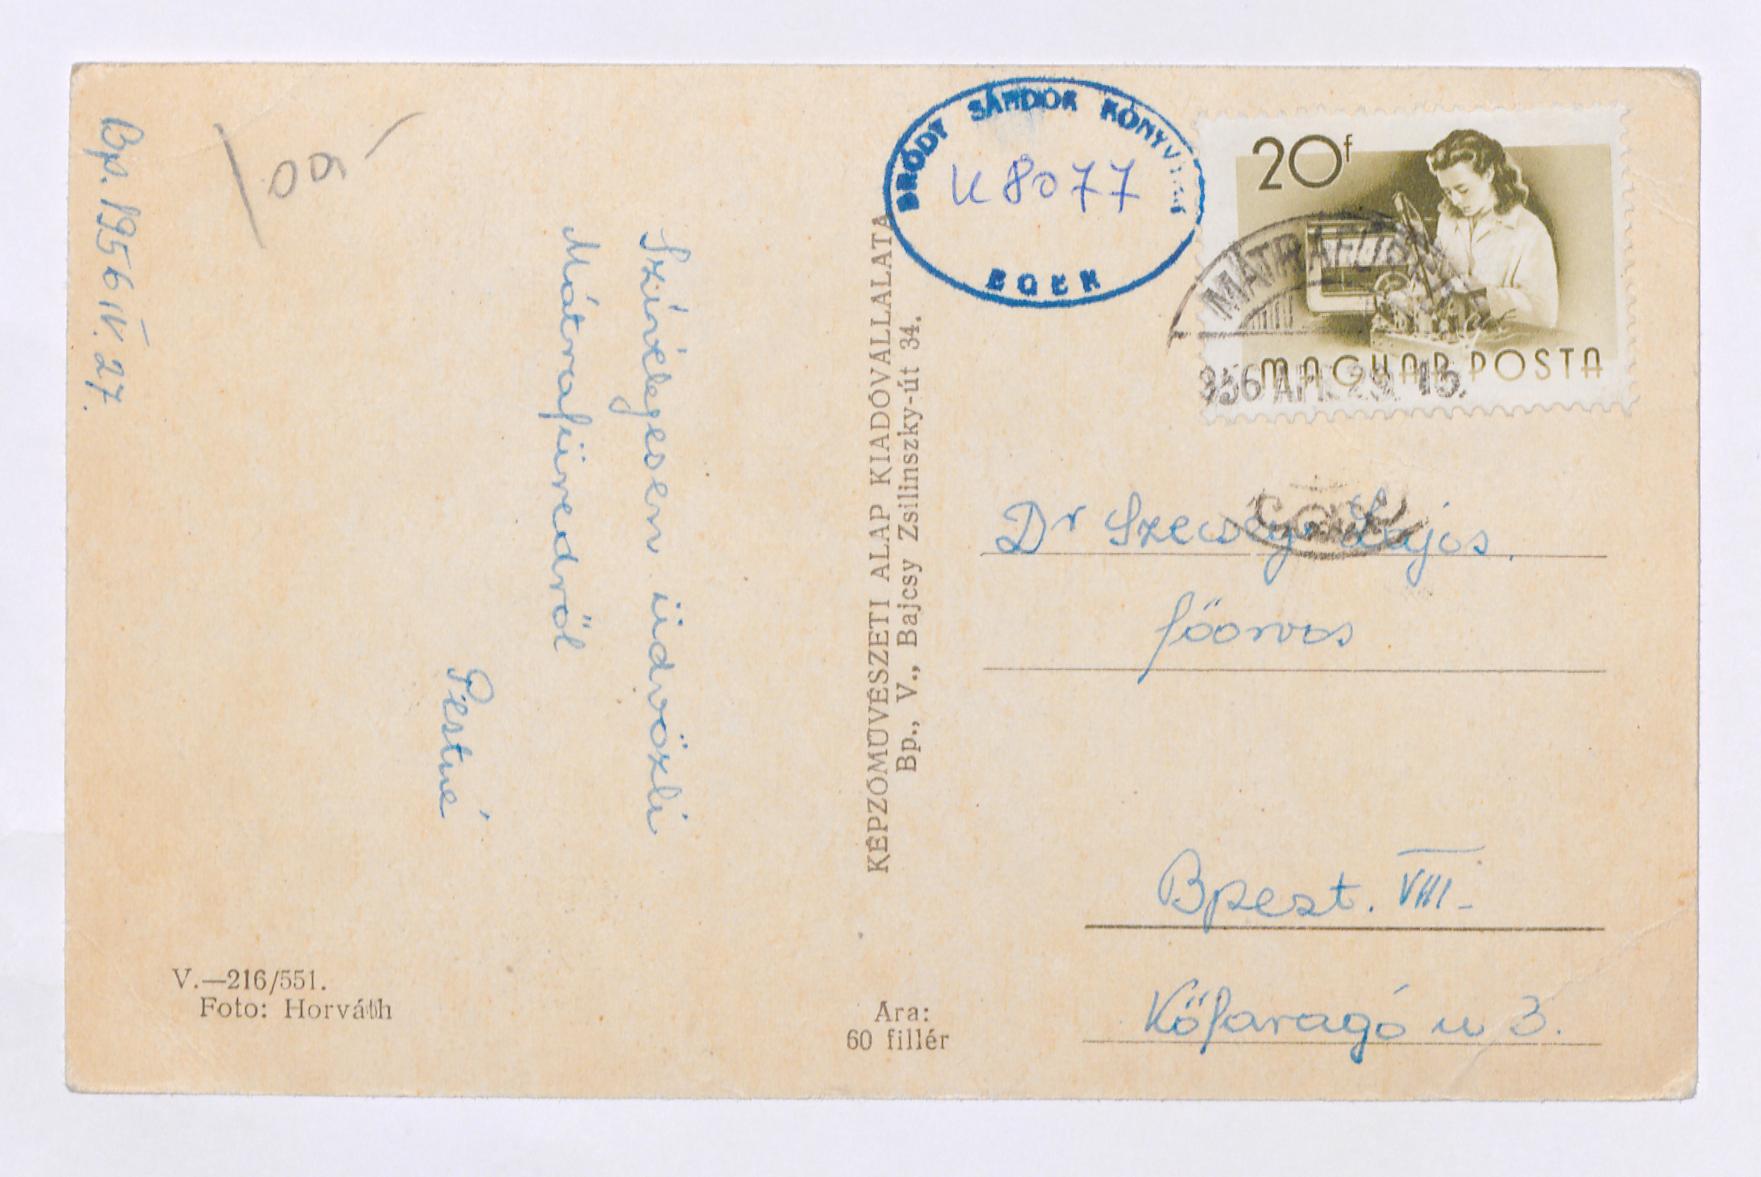 Bp. 1956 IV. 27.
Szívélyesen üdvözli
Mátrafüredről
Pestné
V.—216/551.
Foto: Horváth
KÉPZŐMŰVÉSZETI ALAP KIADÓVÁLLALATA
Bp., V., Bajcsy Zsilinszky-út 34.
Ara:
60 fillér
BRÓDY SÁNDOR KÖNYVTÁR
U 8077
EGER
20f
MAGYAR POSTA
MÁTRAFÜRED
956 ÁPR. 29. 15.
Dr Szecsey Lajos.
főorvos
Bpest. VIII.
Kőfaragó u 3.